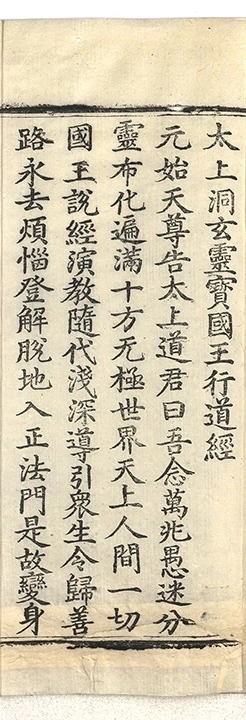 太上洞玄靈寶國王行道經
元始天尊告太上道君曰吾念萬兆愚迷分
靈布化遍滿十方无極世界天上人間一切
國王說經演教隨代淺深導引衆生令歸善
路永去煩惱登解脫地入正法門是故變身